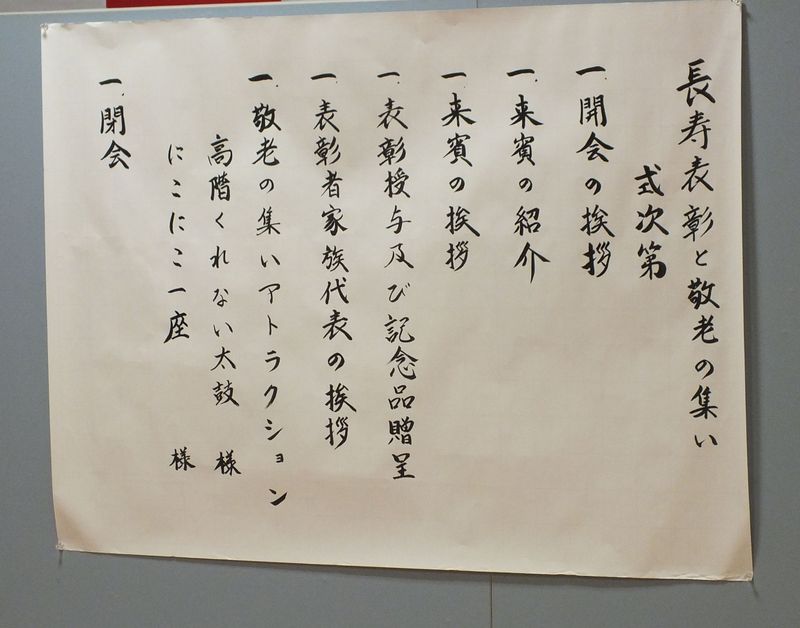 長寿表彰と敬老の集い
式次第
一、開会の挨拶
一、来賓の紹介
一、来賓の挨拶
一、表彰授与及び記念品贈呈
一、表彰者家族代表の挨拶
一、敬老の集いアトラクション
高階くれない太鼓 様
にこにこ一座 様
一、閉会